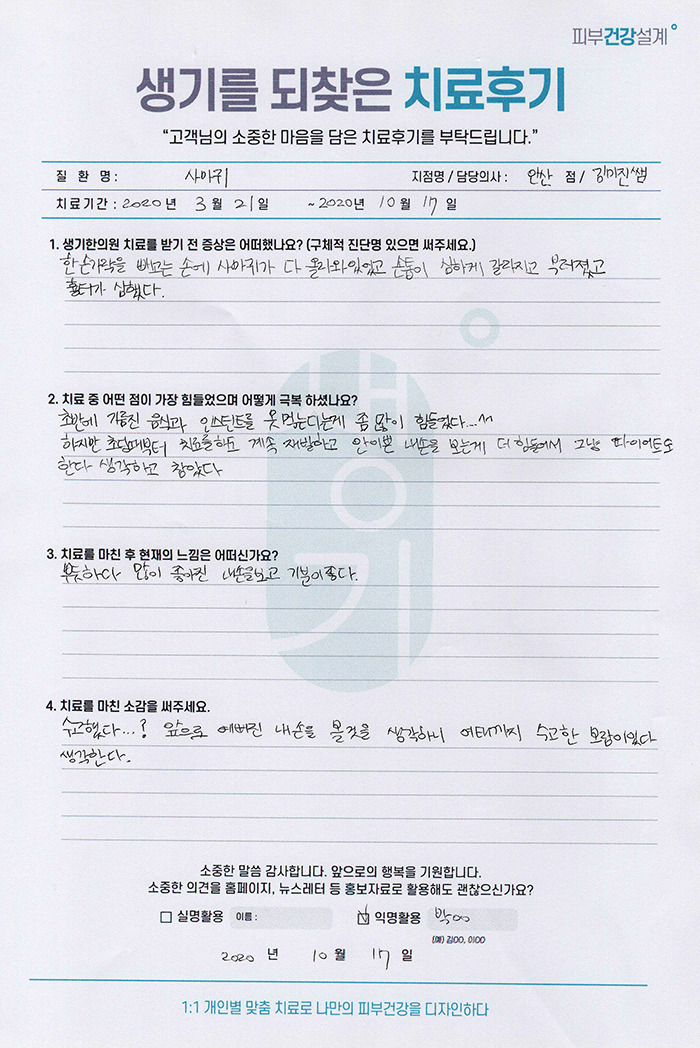 피부건강설계
생기를 되찾은 치료후기
“고객님의 소중한 마음을 담은 치료후기를 부탁드립니다.”
질 환 명 : 사마귀 지점명 / 담당의사 : 안산 점 / 김미진쌤
치료기간 : 2020년 3월 21일 ~2020년 10월 17일
1. 생기한의원 치료를 받기 전 증상은 어떠했나요? (구체적 진단명 있으면 써주세요.)
한손가락을 빼고는 손에 사마귀가 다 올라와있었고 손톱이 심하게 갈라지고 부러졌고
흉터가 심했다.
2. 치료 중 어떤 점이 가장 힘들었으며 어떻게 극복 하셨나요?
초반에 기름진 음식과 인스턴트를 못먹는다는게 좀 많이 힘들었다...^^
하지만 초딩때부터 치료를하고 계속 재발하고 안이쁜 내손을 보는게 더 힘들어서 그냥 다이어트도
한다 생각하고 참았다
3. 치료를 마친 후 현재의 느낌은 어떠신가요?
뿌듯하다 많이 좋아진 내손을보고 기분이좋다.
4. 치료를 마친 소감을 써주세요.
수고했다...! 앞으로 예뻐진 내손을 볼것을 생각하니 여태까지 수고한 보람이있다
생각한다.
생기
소중한 말씀 감사합니다. 앞으로의 행복을 기원합니다.
소중한 의견을 홈페이지, 뉴스레터 등 홍보자료로 활용해도 괜찮으신가요?
실명활용 이름 : 익명활용 박OO
(예) 김OO, 이OO
2020 년 10 월 17 일
1:1 개인별 맞춤 치료로 나만의 피부건강을 디자인하다